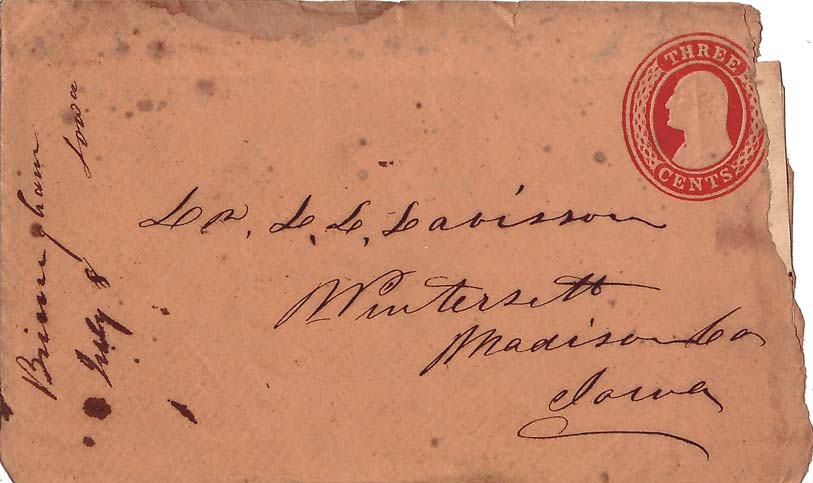 THREE
CENTS
Birmingham Iowa
July 8
Dr. D. D. Davisson
Wintersett
Madison Co
Iowa